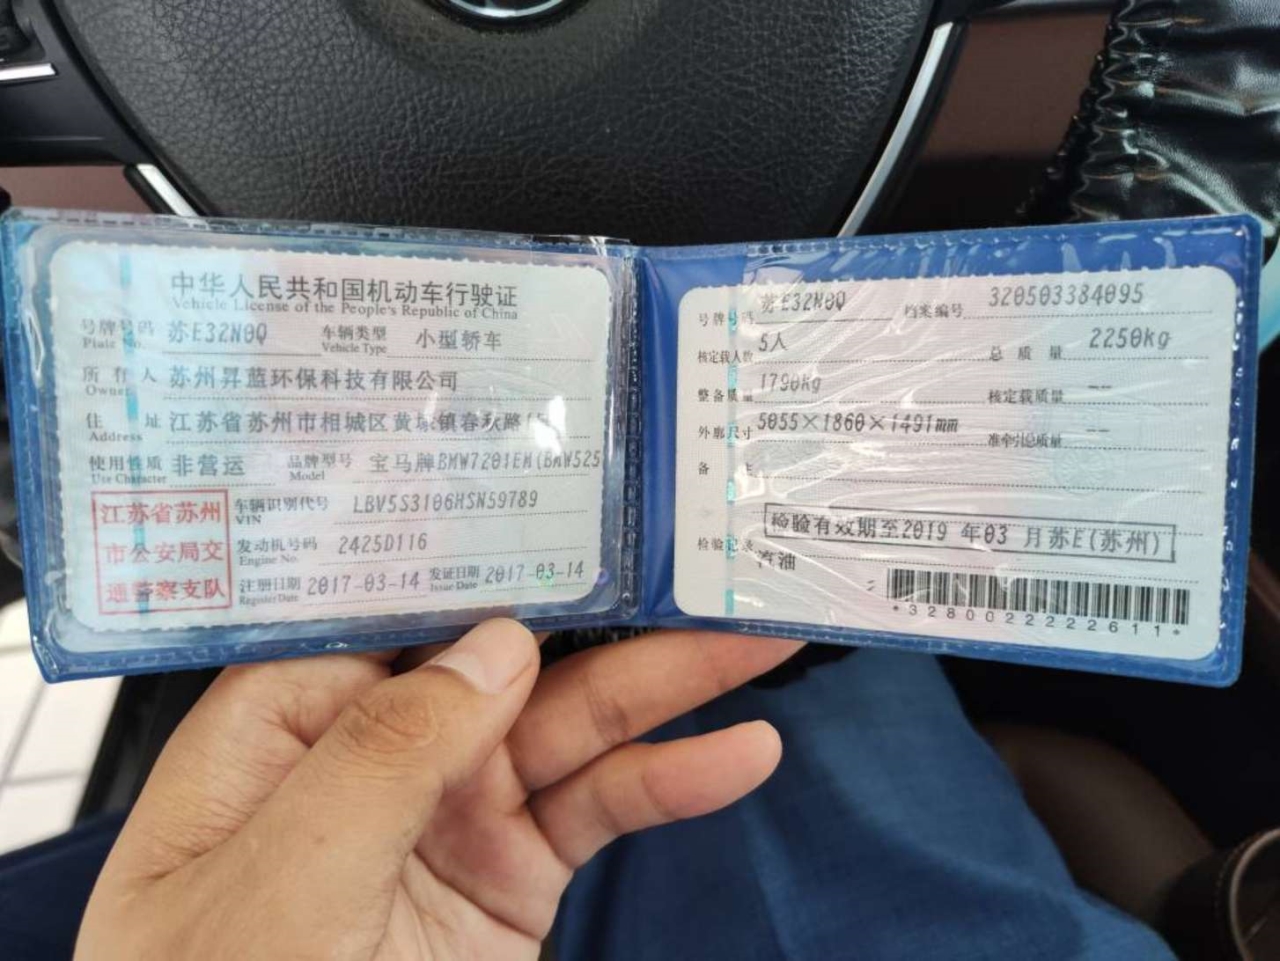 中华人民共和国机动车行驶证
Vehicle License of the People's Republic of China
号牌号码 苏E32N0Q 车辆类型 小型轿车
Plate No. Vehicle Type
所有人 苏州昇蓝环保科技有限公司
Owner
住址 江苏省苏州市相城区黄埭镇春秋路
Address
使用性质 非营运 品牌型号 宝马牌BMW7201EM(BMW525
Use Character Model
江苏省苏州
市公安局交
通警察支队
车辆识别代号 LBV5S3106HSN59789
VIN
发动机号码 2425D116
Engine No.
注册日期 2017-03-14 发证日期 2017-03-14
Register Date Issue Date
号牌号码 苏E32N0Q 档案编号 320503384095
核定载人数 5人 总质量 2250kg
整备质量 1790kg 核定载质量 --
外廓尺寸 5055×1860×1491mm 准牵引总质量 --
备注
检验有效期至2019 年03 月苏E(苏州)
检验记录
汽油
*3280022222611*